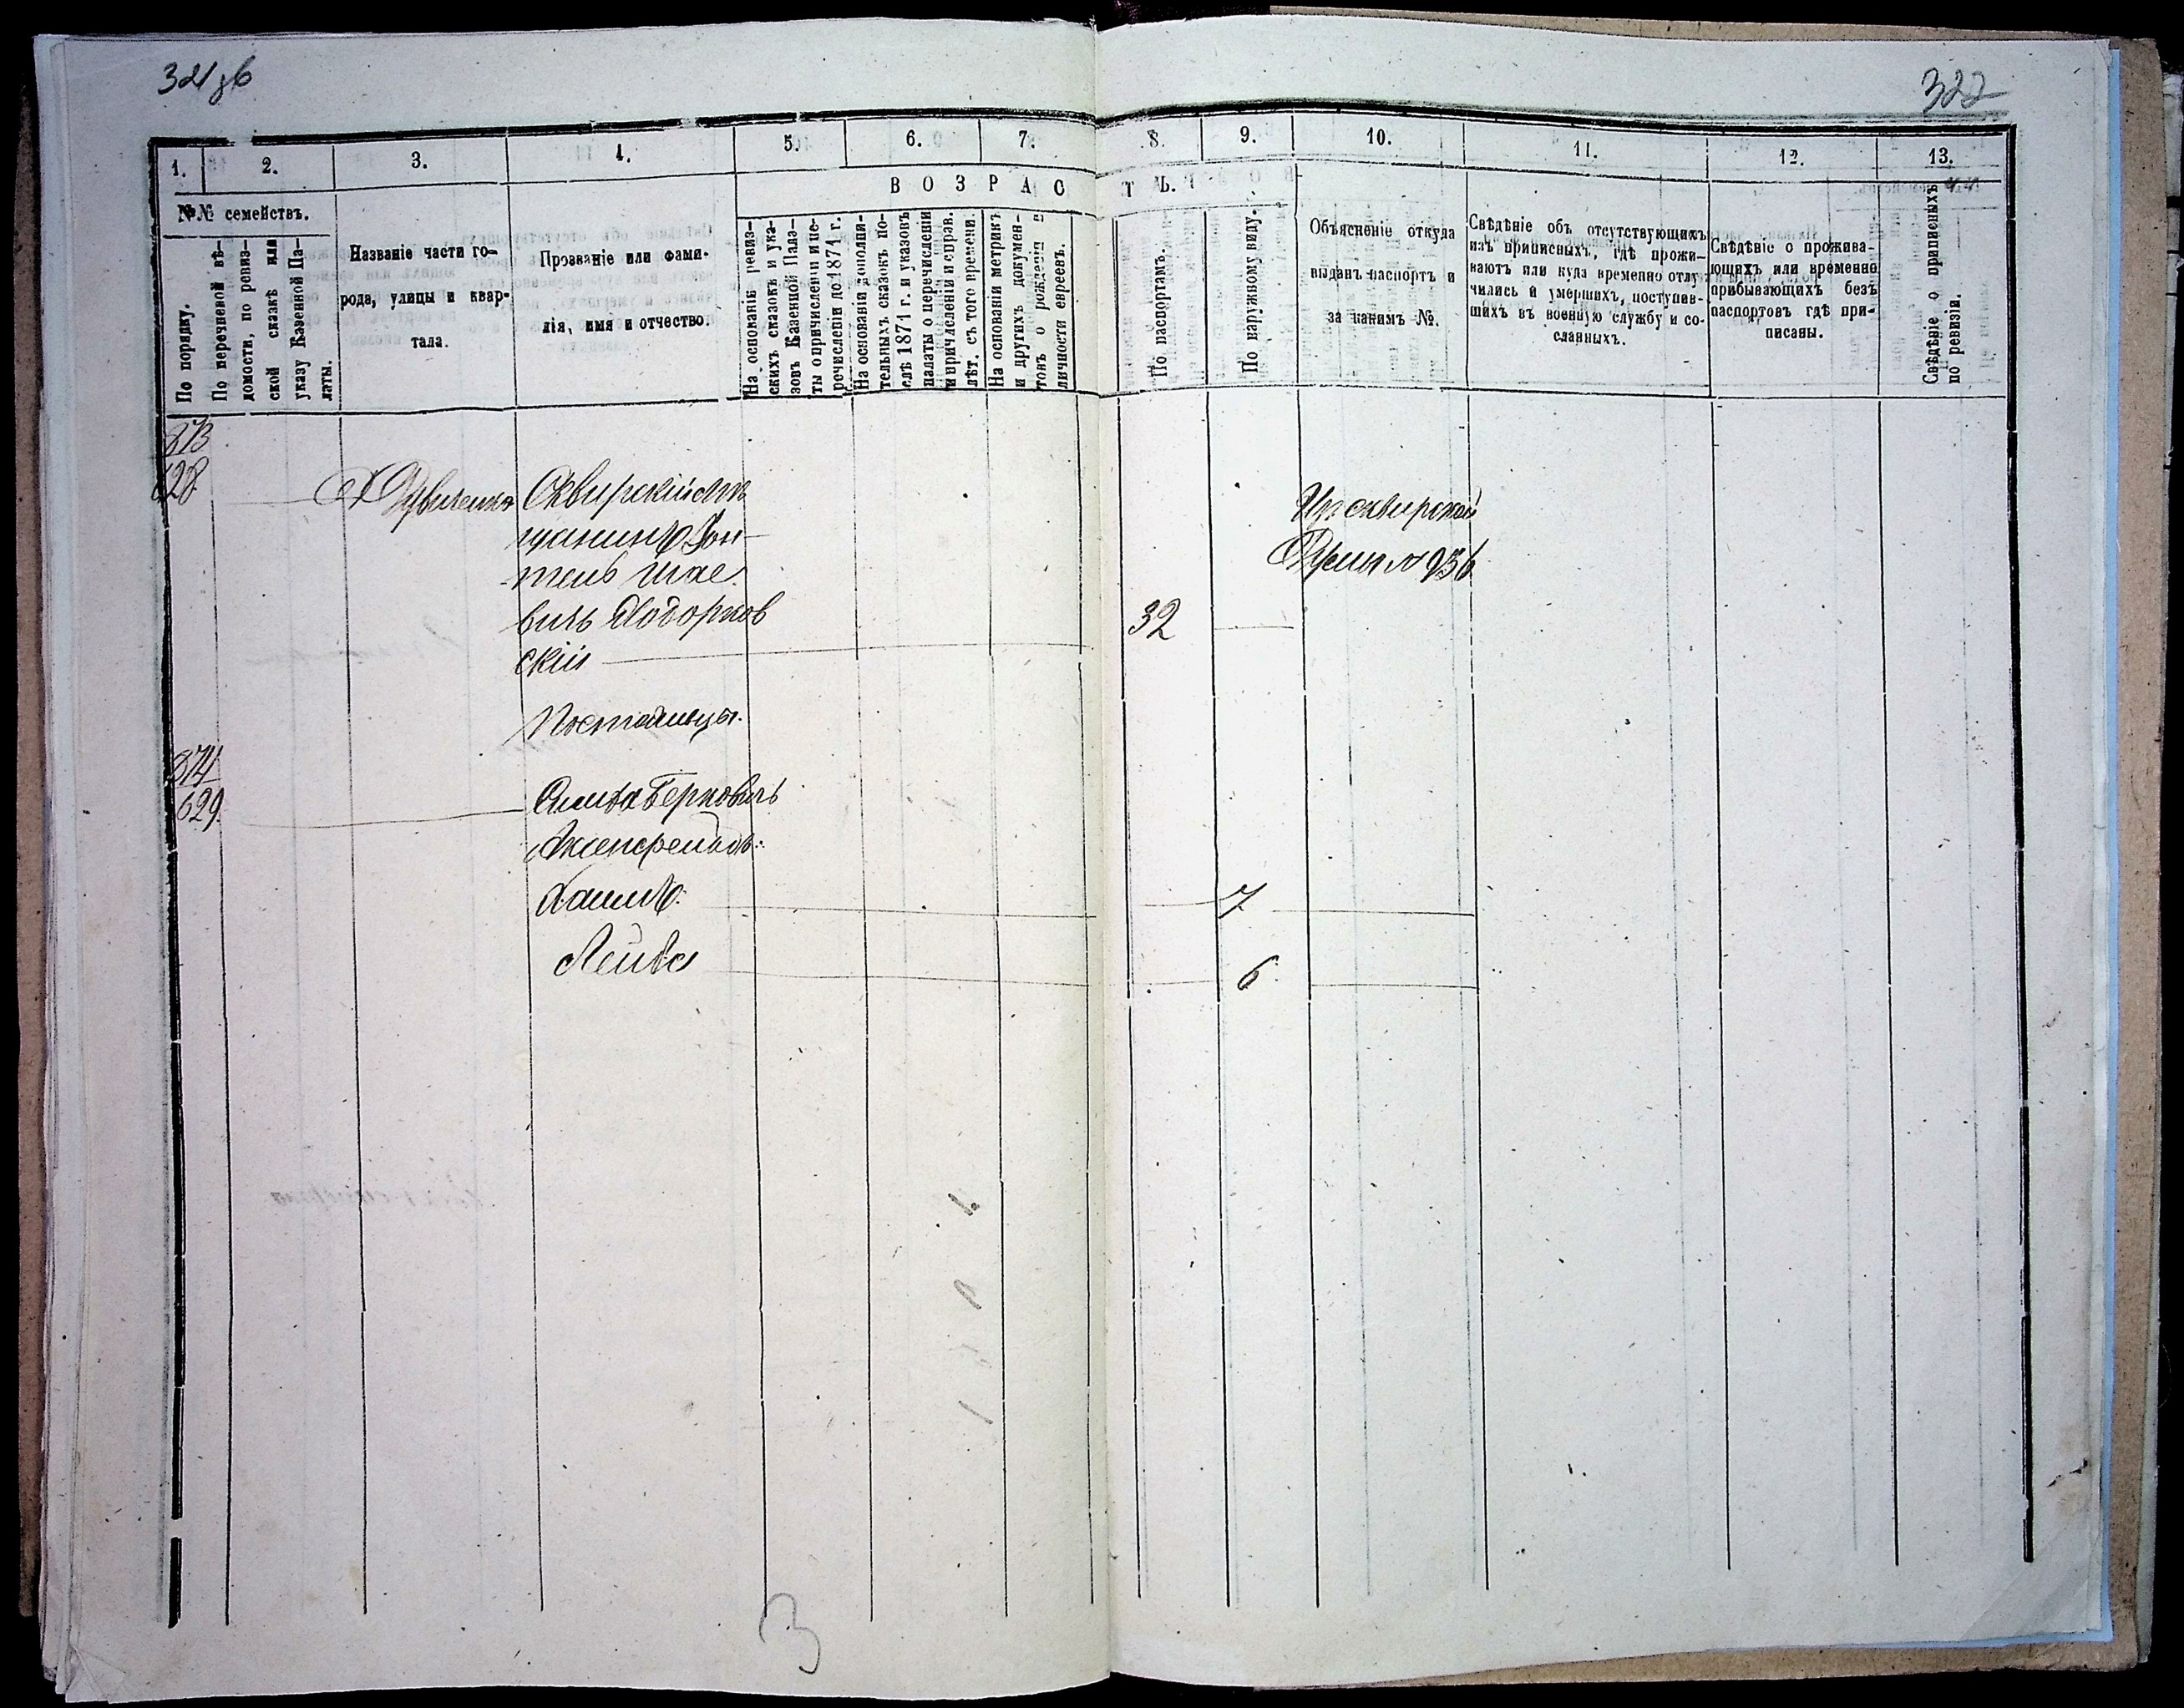 321 об
322
1. 2. 3. 4. 5. 6. 7. 8. 9. 10. 11. 12. 13.
№№ семействъ.
ВОЗРАСТЪ.
По порядку.
По перечневой вѣ-
домости, по ревиз-
ской сказкѣ или
указу Казенной Па-
латы.
Названіе части го-
рода, улицы и квар-
тала.
Прозваніе или фами-
лія, имя и отчество.
На основаніи ревиз-
скихъ сказокъ и ука-
зовъ Казенной Пала-
ты о причисленіи и пе-
речисленіи до 1871 г.
На основаніи дополни-
тельныхъ сказокъ по-
слѣ 1871 г. и указовъ
палаты о перечисленіи
и причисленіи и справ.
лѣт. съ того времени.
На основаніи метрикъ
и другихъ докумен-
товъ о рожденіи и
личности евреевъ.
По паспортамъ.
По наружному виду.
Объясненіе откуда
выданъ паспортъ и
за какимъ №.
Свѣдѣніе объ отсутствующихъ
изъ приписныхъ, гдѣ прожи-
ваютъ или куда временно отлу-
чились и умершихъ, поступив-
шихъ въ военную службу и со-
сланныхъ.
Свѣдѣніе о прожива-
ющихъ или временно
прибывающихъ безъ
паспортовъ гдѣ при-
писаны.
Свѣдѣніе о приписныхъ
по ревизіи.
873
628
Сквирскій мѣ
щанинъ
шае
вичь Ходорков
скій
32
Изъ сквирской
Думы № 936
Постояльцы.
874
629
Берковичь
Хаимъ
7
Лейба
6
3